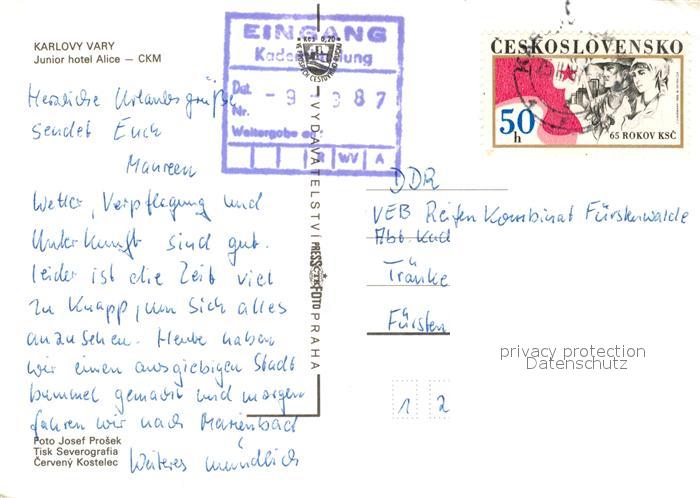 KARLOVY VARY
Junior hotel Alice — CKM
Herzliche Urlaubsgrüße
sendet Euch
Maureen
Wetter, Verpflegung und
Unterkunft sind gut.
leider ist die Zeit viel
zu knapp, um sich alles
anzusehen. Heute haben
wir einen ausgiebigen Stadt
bummel gemacht und morgen
fahren wir nach Marienbad
Weiteres mündlich
Foto Josef Prošek
Tisk Severografia
Červený Kostelec
EINGANG
Dat. - 9. 3 87
Nr.
Weitergabe an:
R WV A
Kčs 0,20
VYDAVATELSTVÍ PRESSFOTO PRAHA
ČESKOSLOVENSKO
50 h
65 ROKOV KSČ
DDR
VEB Reifen Kombinat Fürstenwalde
Abt. Kad
Tränke
Fürsten
1 2
privacy protection
Datenschutz